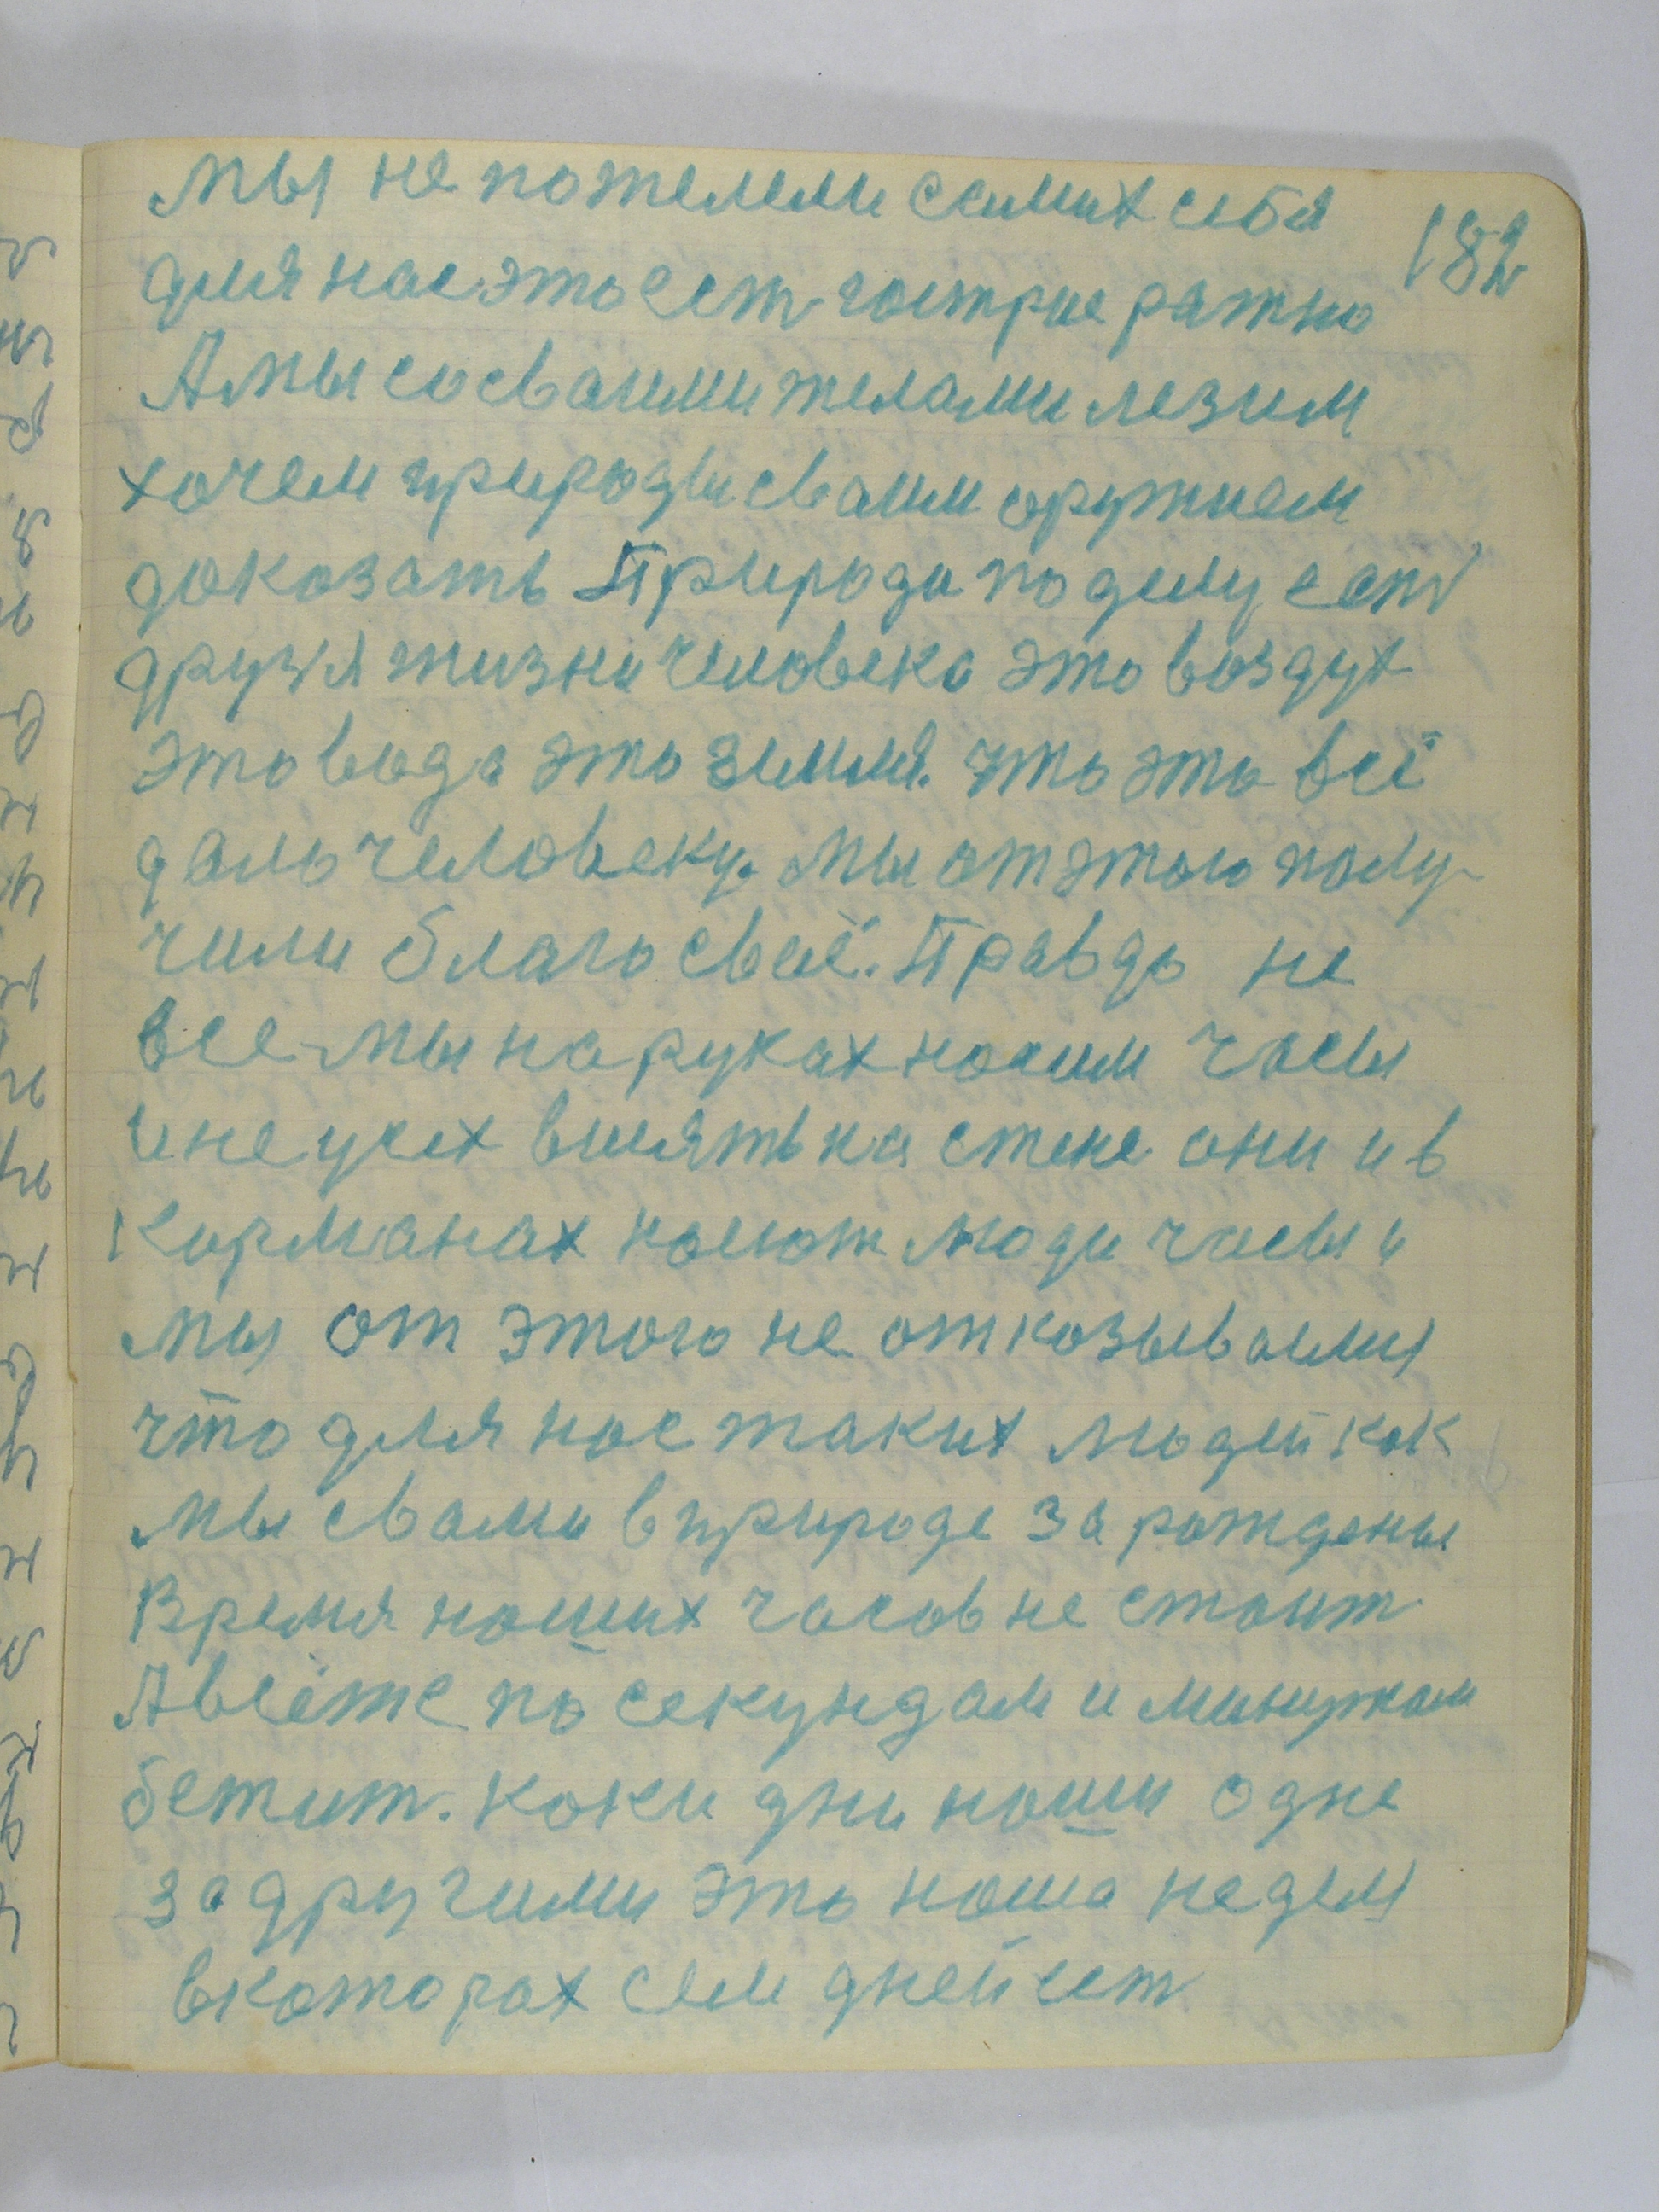 182
мы не пожелели самих себя
для нас это ест гострае ражно
А мы со своими телами лезим
хочем природи своим оружием
доказать Природа по делу есть
друзя жизни человека это воздух
это вода это земля. что это всё
дало человеку. Мы от этого полу-
чили благо своё. Правдо не
все мы на руках носим часы
и не у всех висять на стене они и в
карманах носют люди часы и
мы от этого не отказываимся
что для нас таких людей как
мы с вами в природе зарождены
Время наших часов не стоит
А всёже по секундам и минуткам
бежит. Как и дни наши одне
за другими это наша неделя
в которах сем дней ест